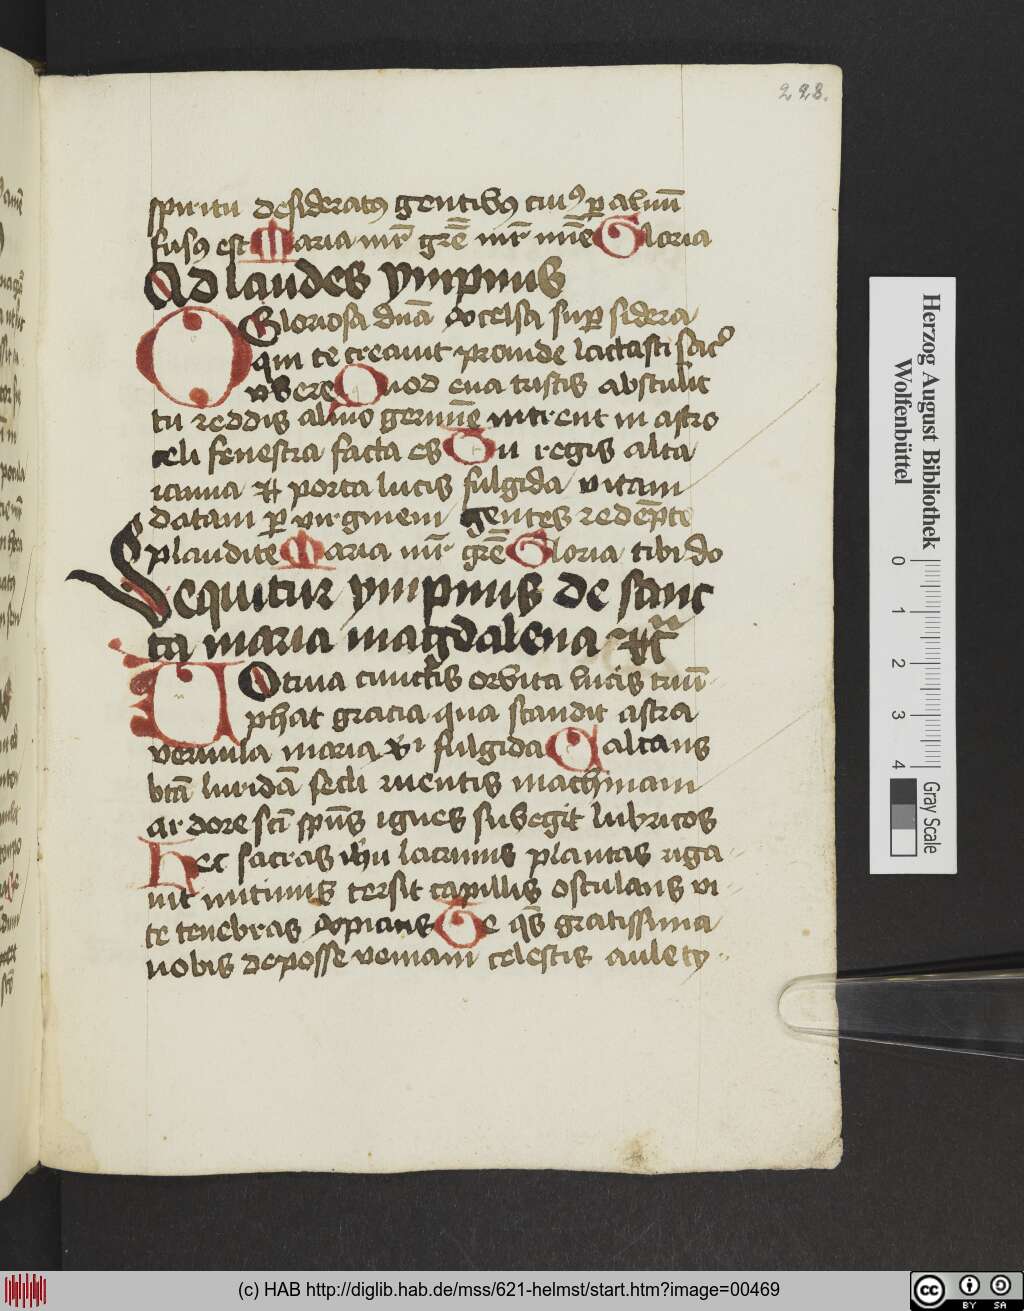 228.
spiritu desideratꝰ gentibꝰ cuiꝰ ꝑ aluū
fusꝰ est Maria mr̄ grē mr̄ mīe Gloria
Ad laudes ympnus
O Gloriosa dnā excelsa suꝑ sidera
qui te creauit prouide lactasti sacͦ
vbere Quod eua tristis abstulit
tu reddis almo germīe intrent ut astro
celi fenestra facta es Tu regis alta
ianua et porta lucis fulgida vitam
datam ꝑ virginem gentes redēpte
plaudite Maria mr̄ grē Gloria tibi do
Sequitur ympnus de sanc
ta maria magdalena
Votiua cunctis orbita lucis triū
phat gracia qua scandit astra
vernula maria vi fulgida Calcans
btā luridā secli ruentis machinam
ardore scī spūs ignes subegit lubricos
Hec sacras ihū lacrimis plantas riga
uit intimis tersit capillis osculans vi
te tenebras expians Te qs̄ gratissima
nobis deposse veniam celestis aule ty
Herzog August Bibliothek
Wolfenbüttel
0 1 2 3 4
Gray Scale
(c) HAB http://diglib.hab.de/mss/621-helmst/start.htm?image=00469
cc BY SA